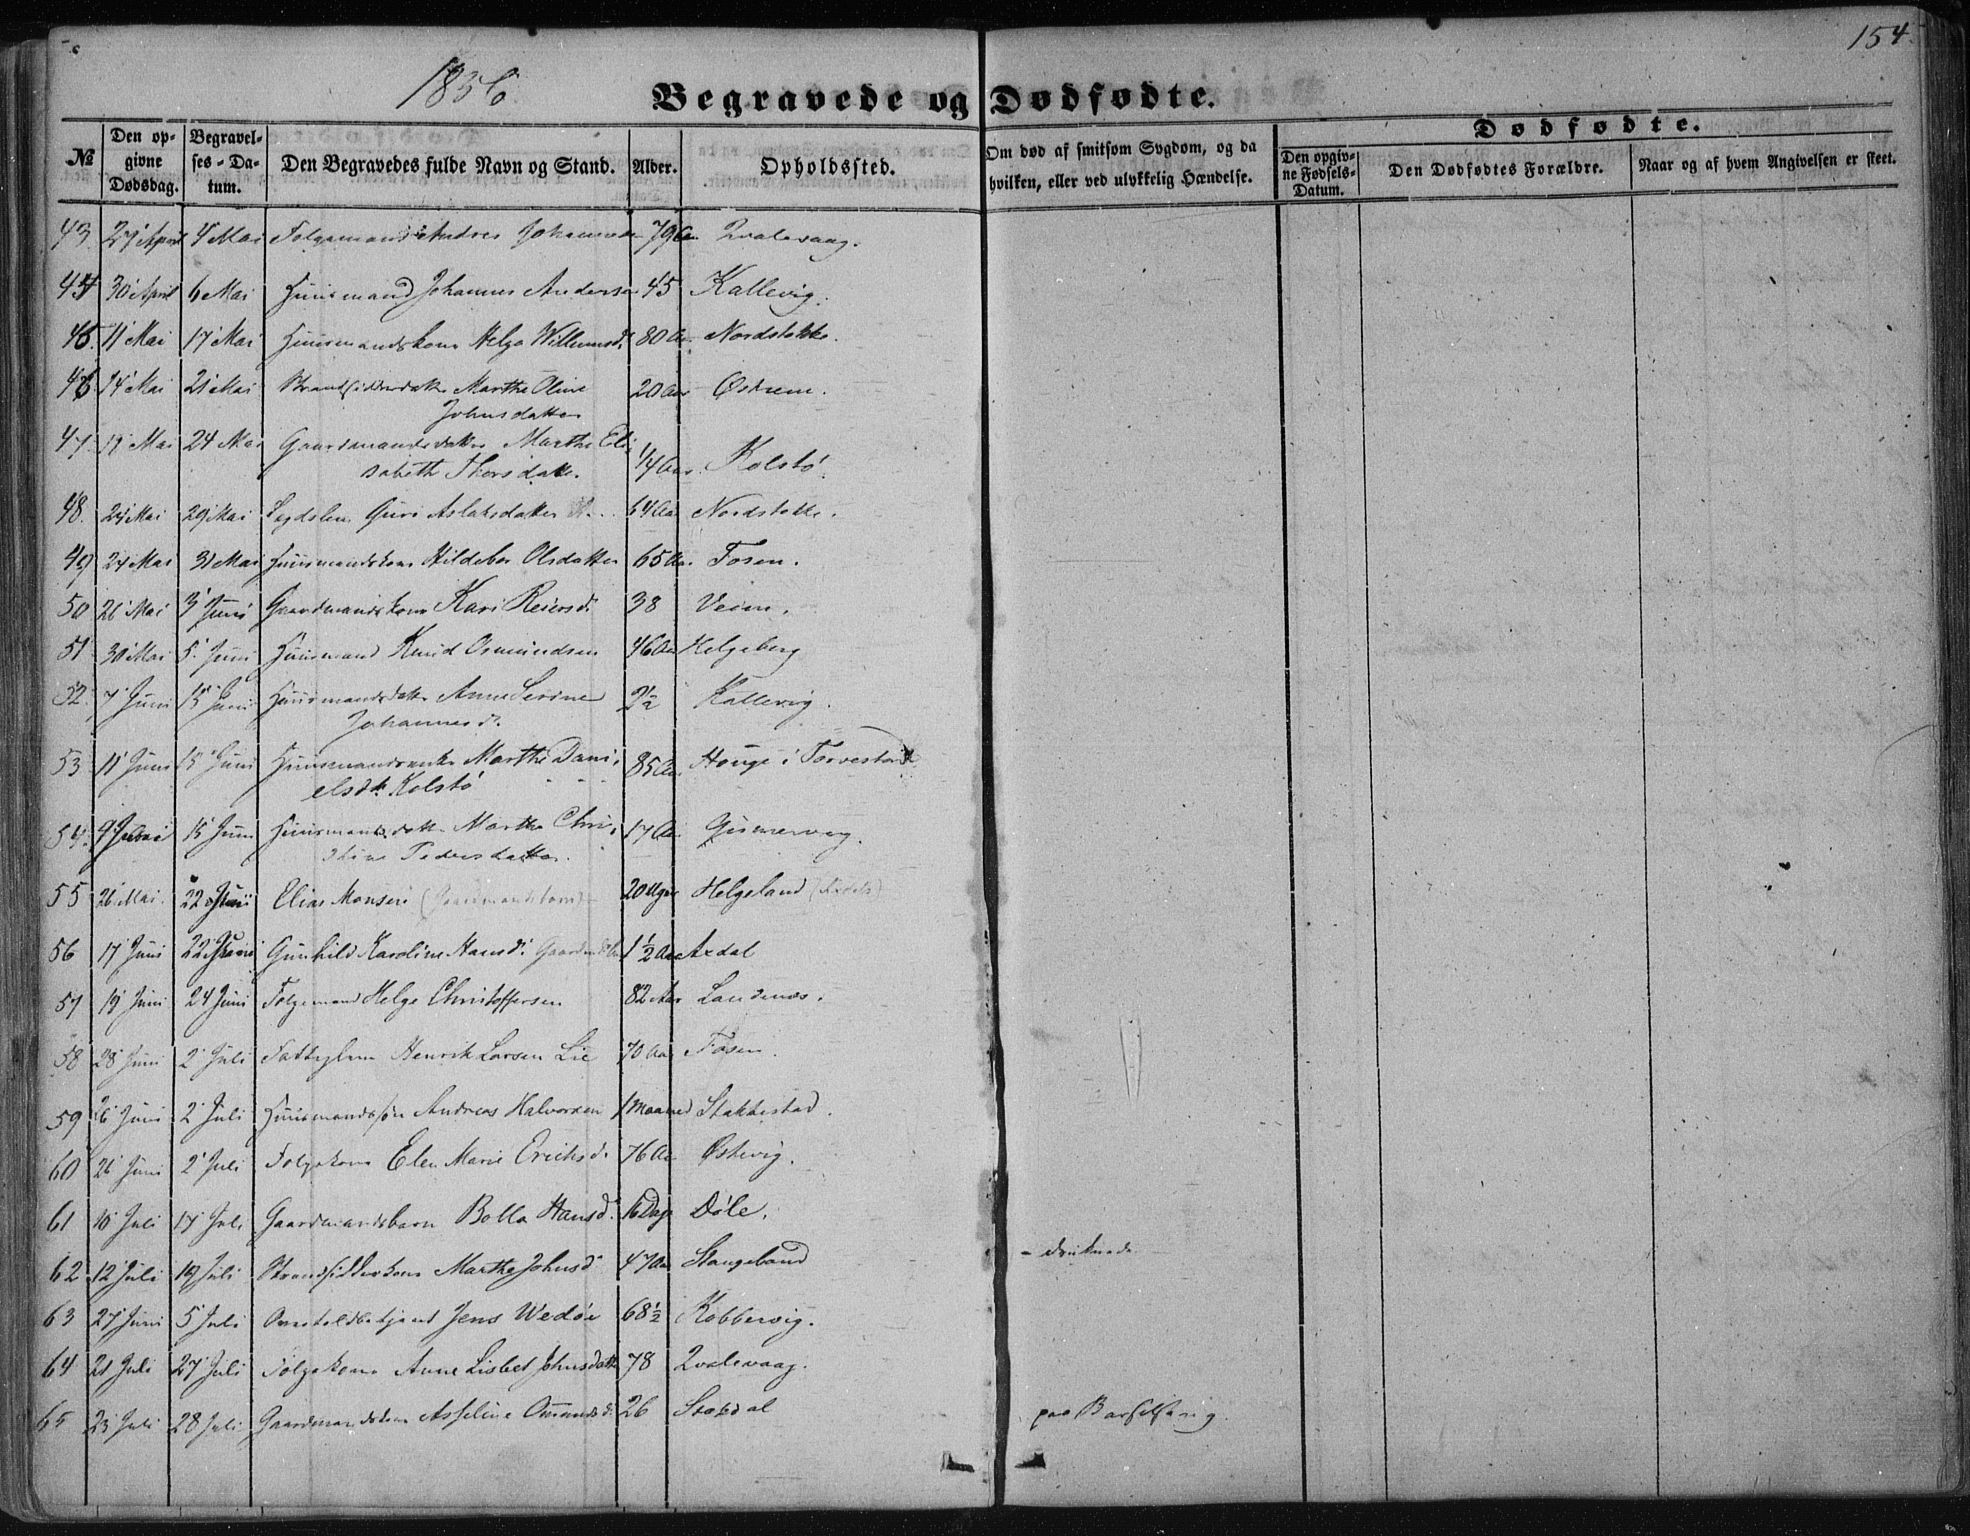 154.
1856.
Begravede og Dødfødte.
Dødfødte.
No Den opgivne Dødsdag. Begravelses-Datum. Den Begravedes fulde Navn og Stand. Alder. Opholdssted. Om død af smitsom Sygdom, og da hvilken, eller ved ulykkelig Hændelse. Den opgivne Fødsels-Datum. Den Dødfødtes Forældre. Naar og af hvem Angivelsen er skeet.
43. 27 April 4 Mai Folgemand Andres Johannesen 79 Aar Qvalevaag.
44 30 April 6 Mai Huusmand Johannes Andersen 45 Kallevig.
45. 11 Mai 17 Mai Huusmandskone Helga Willumsd. 80 Aar Nordstokke.
46. 14 Mai 21 Mai Strandsidderdatter Marthe Oline
Johnsdatter 20 Aar Østrem.
47. 19 Mai 24 Mai Gaardmandsdatter Marthe Eli-
sabeth Thorsdatt. 1/4 Aar Kolstø.
48. 24 Mai 29 Mai Lægdslem Guri Aslaksdatter 64 Aar Nordstokke.
49 24 Mai 31 Mai Huusmandskone Hildebor Olsdatter 65 Aar Fosen.
50 26 Mai 3 Juni Gaardmandskone Kari Reiersd. 38 Veim.
51 30 Mai 5 Juni Huusmand Knud Osmundsen 46 Aar Helgeberg
52. 7 Juni 15 Juni Huusmandsdatter Anne Serine
Johannesd. 2 1/2 Kallevig.
53 11 Juni 15 Juni Huusmandsenke Marthe Dani-
elsd. Kolstø 85 Aar Houge i Torvestad
54. 9 Juni 15 Juni Huusmandsdatter Marthe Chri-
stine Pedersdatter. 17 Aar Gismervig.
55 26 Mai. 22 Juni Elias Monsen (Gaardmandsbarn) 20 Uger Helgeland
56 17 Juni 22 Juni Gunhild Karoline Hansd. 1 1/2 Aar Axdal
57 19 Juni 24 Juni Folgemand Helge Christoffersen 82 Aar Landenæs.
58 28 Juni 2 Juli Fattiglem Henrik Larsen Lie 70 Aar Fosen.
59 26 Juni 2 Juli Huusmandssøn Andreas Halvorsen 1 Maaned Stakkestad.
60 26 Juni 2 Juli Folgekone Elen Marie Erichsd. 76 Aar Østevig.
61 10 Juli 17 Juli Gaardmandsbarn Bolla Hansd. 16 Dage Døle.
62 12 Juli 19 Juli Strandsidderkone Marthe Johnsd. 47 Aar Stangeland - druknede
63 27 Juni 5 Juli Jens Wedøe 68 1/2 Kobbervig.
64 21 Juli 27 Juli Folgekone Anne Lisbet Johnsdatter 78 Qvalevaag.
65 23 Juli 28 Juli Gaardmandskone Asseline Omundsd. 26 Stokdal paa Barselseng.